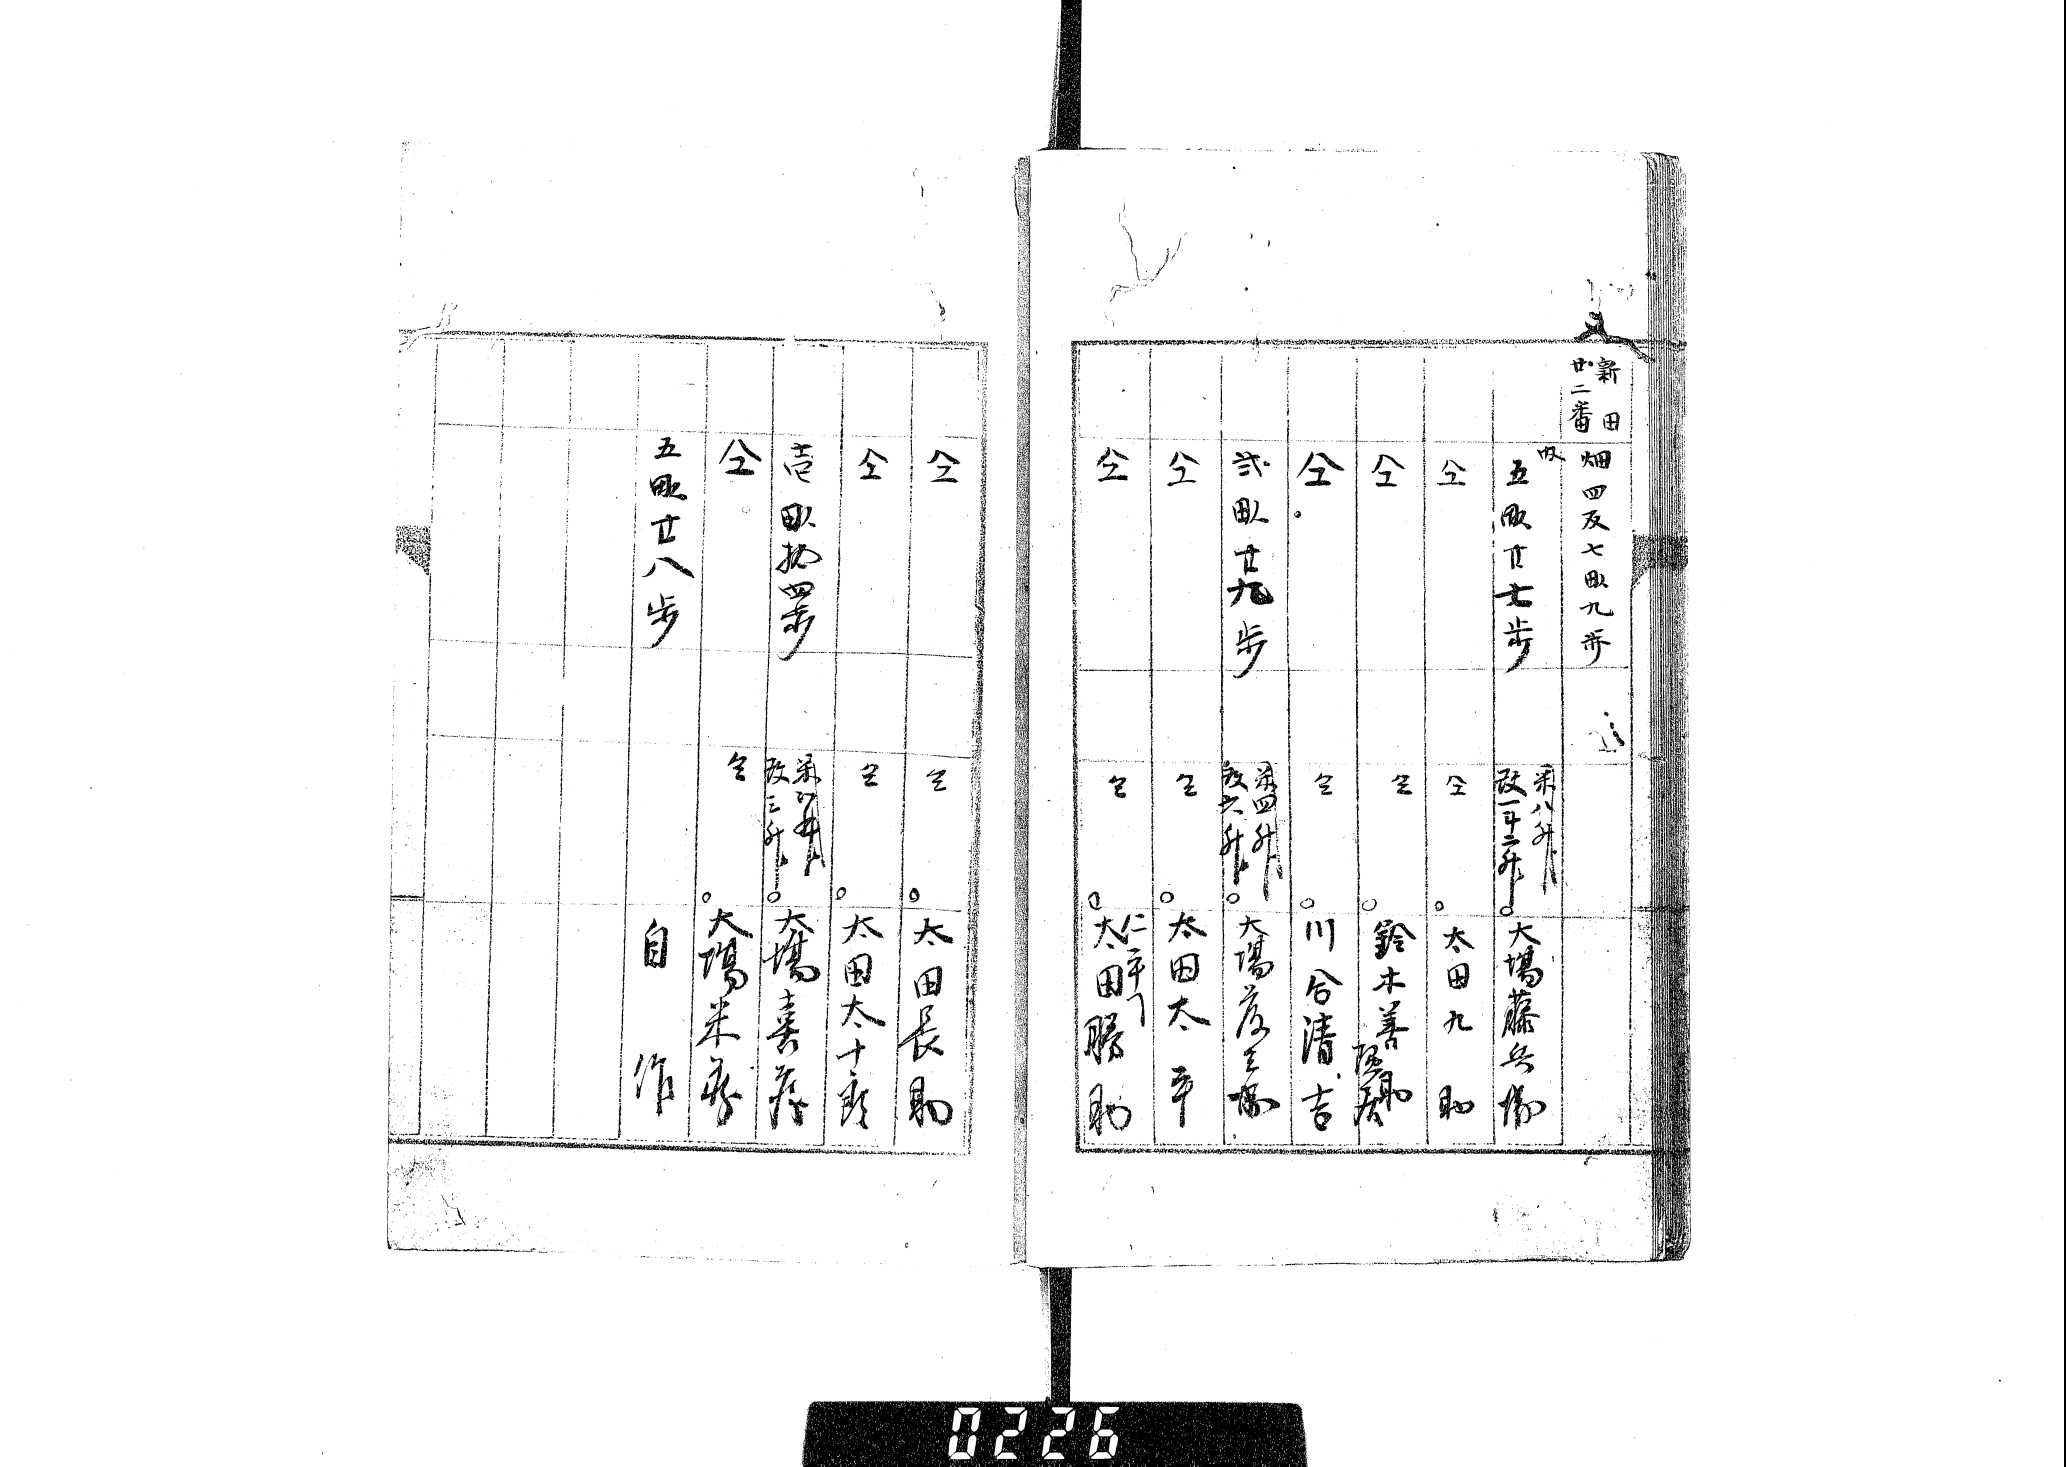 新田
廿二番
畑四反七畝九歩
内
五畝廿七歩
粟八升
改一斗二升
大場藤兵衛
仝
仝
太田九助
仝
仝
鈴木善助
仝
仝
川合清吉
弐畝廿九歩
粟四升
改六升
大場
仝
仝
太田太平
仝
仝
仁平
太田勝助
仝
仝
太田長助
仝
仝
太田太十郎
壱畝拾四歩
粟
改三升
大場喜蔵
仝
仝
大場米蔵
五畝廿八歩
自作
0226